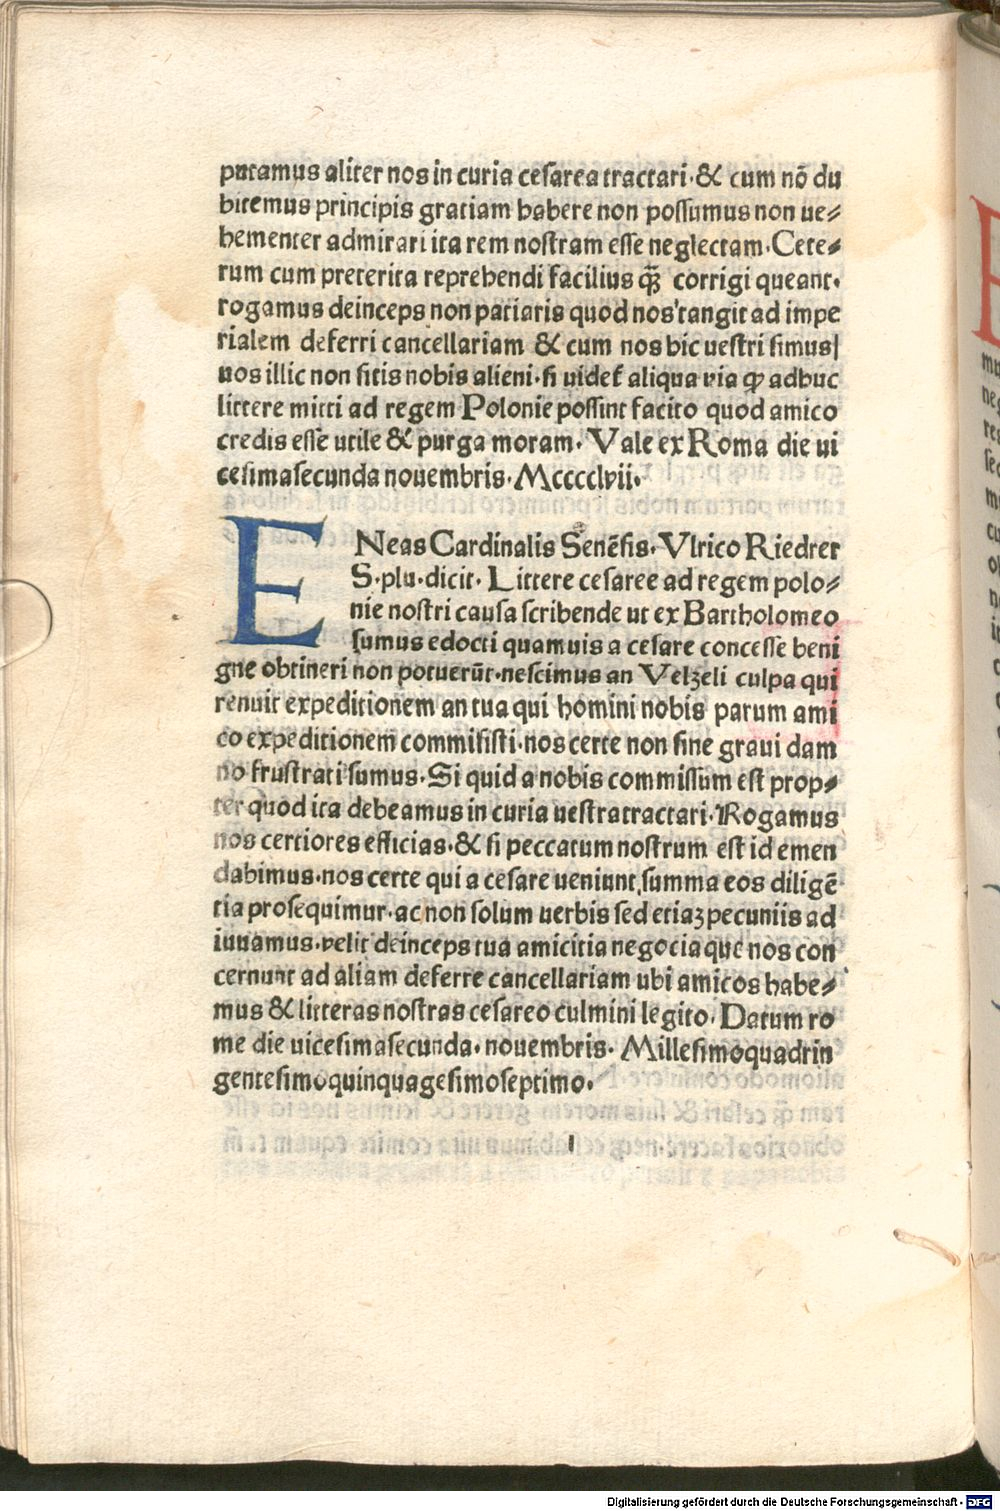 putamus aliter nos in curia cesarea tractari·& cum nõ du
bitemus principis gratiam habere non possumus non ue⸗
hementer admirari ita rem nostram esse neglectam·Cete⸗
rum cum preterita reprehendi facilius q̃ȝ corrigi queant·
rogamus deinceps non patiaris quod nos tangit ad impe
rialem deferri cancellariam & cum nos hic uestri simus|
uos illic non sitis nobis alieni·si uidet̃ aliqua via ꝙ adhuc
littere mitti ad regem Polonie possint facito quod amico
credis esse utile & purga moram· Vale ex Roma die ui
cesimasecunda nouembris·Mcccclvii·
ENeas Cardinalis Senẽsis·Vlrico Riedrer
S·plu·dicit· Littere cesaree ad regem polo⸗
nie nostri causa scribende ut ex Bartholomeo
sumus edocti quamuis a cesare concesse beni
gne obtineri non potuerũt·nescimus an Velzeli culpa qui
renuit expeditionem an tua qui homini nobis parum ami
co expeditionem commisisti·nos certe non sine graui dam
no frustrati sumus·Si quid a nobis commissum est prop⸗
ter quod ita debeamus in curia uestra tractari·Rogamus
nos certiores efficias·& si peccatum nostrum est id emen
dabimus·nos certe qui a cesare ueniunt summa eos diligẽ
tia prosequimur·ac non solum uerbis sed etiaȝ pecuniis ad
iuuamus·velit deinceps tua amicitia negocia que nos con
cernunt ad aliam deferre cancellariam ubi amicos habe⸗
mus & litteras nostras cesareo culmini legito· Datum ro
me die uicesimasecunda·nouembris· Millesimoquadrin
gentesimoquinquagesimoseptimo·
Digitalisierung gefördert durch die Deutsche Forschungsgemeinschaft - DFG